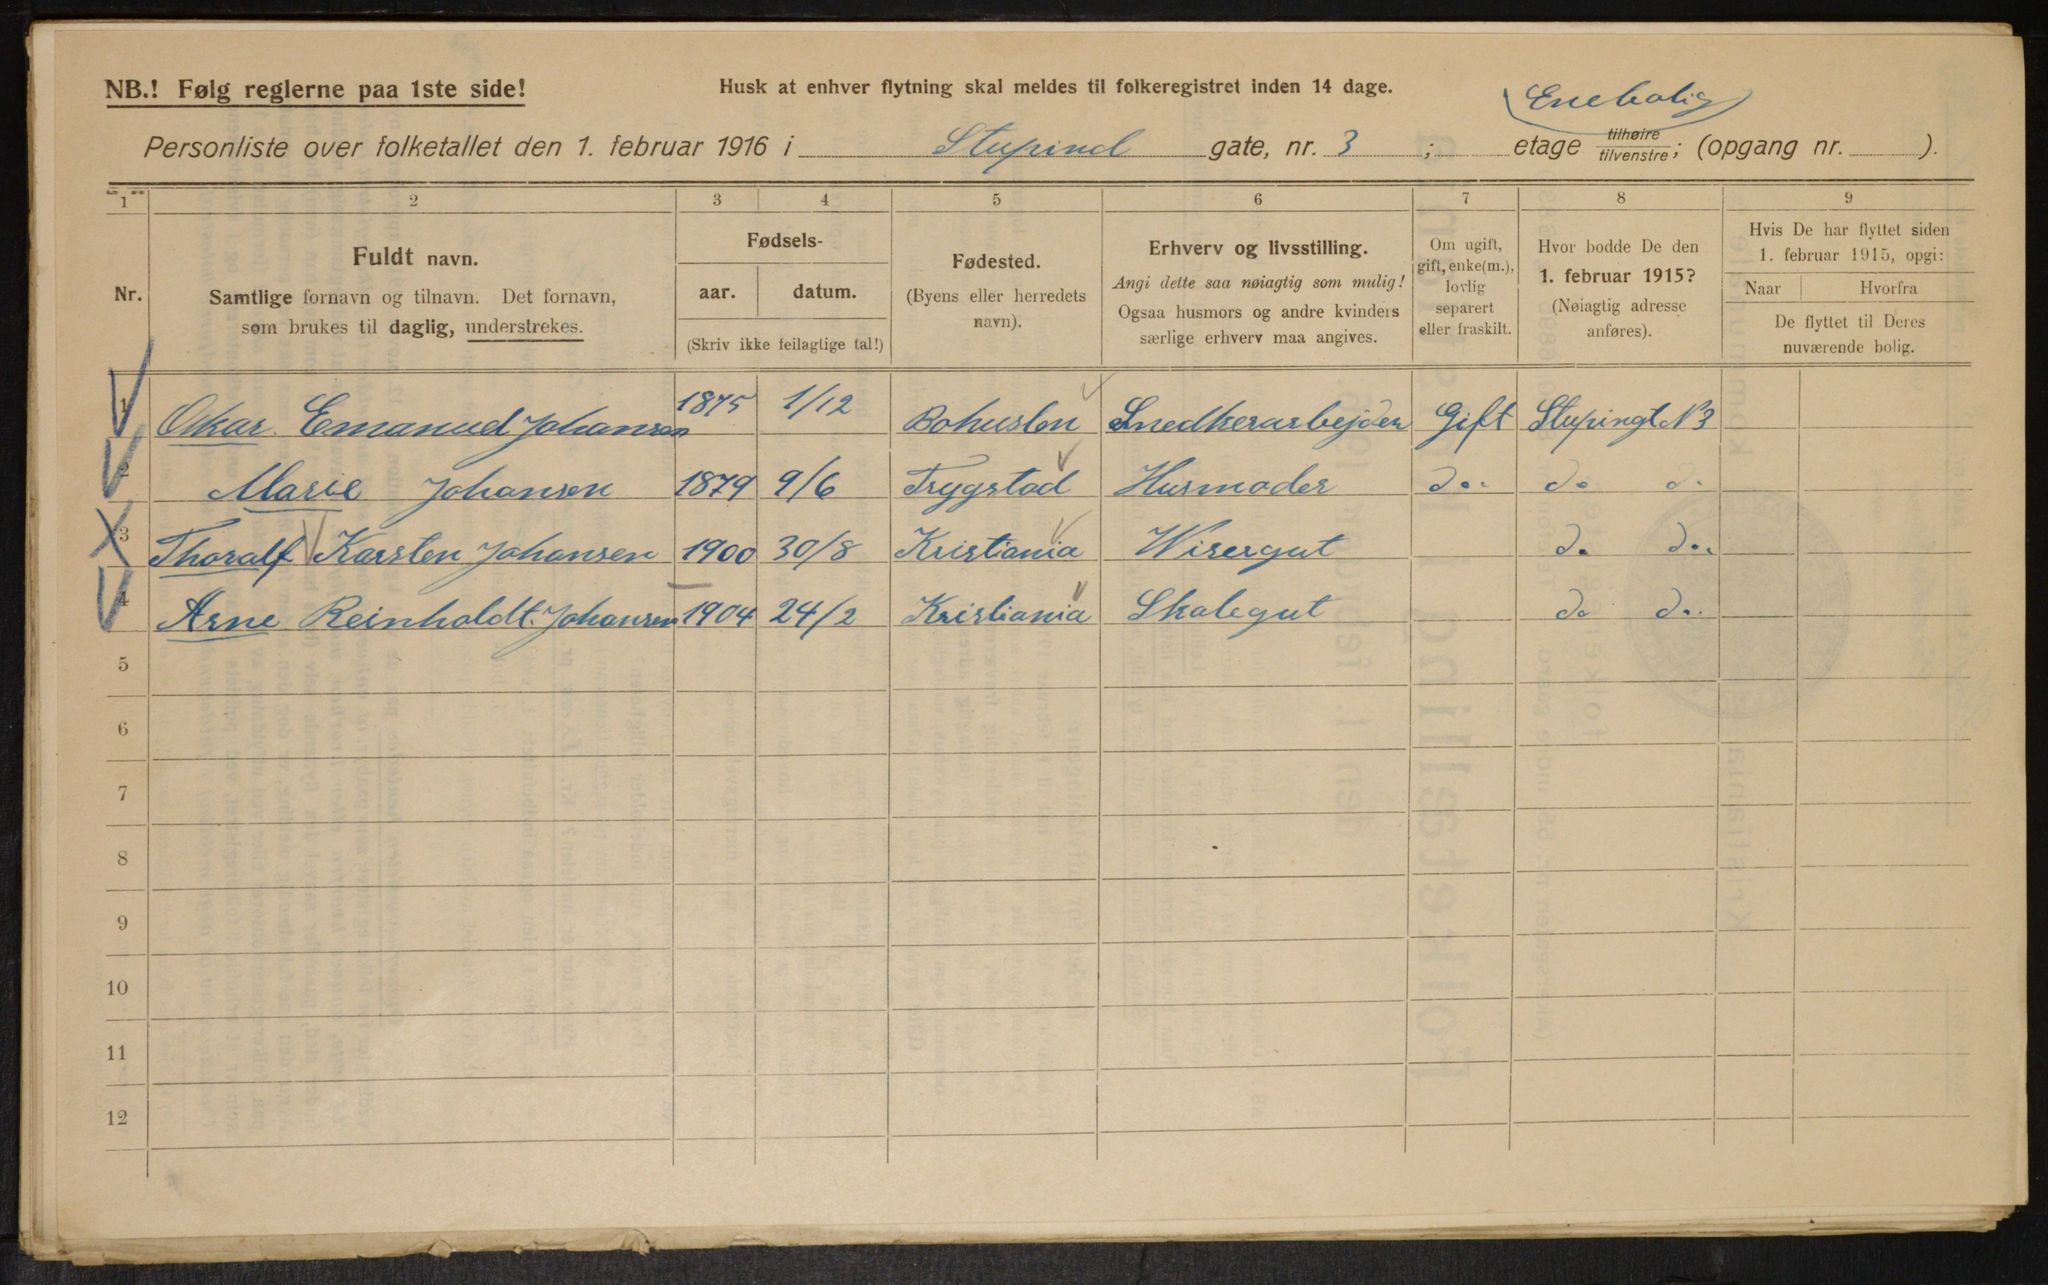 NB.! Følg reglerne paa 1ste side!
Husk at enhver flytning skal meldes til folkeregistret inden 14 dage.
Enebolig
Personliste over folketallet den 1. februar 1916 i Stupind gate, nr. 3 ; etage tilhøire/tilvenstre; (opgang nr. ).
1 2 3 4 5 6 7 8 9
Nr.
Fuldt navn.
Samtlige fornavn og tilnavn. Det fornavn,
som brukes til daglig, understrekes.
Fødsels-
aar. datum.
(Skriv ikke feilagtige tal!)
Fødested.
(Byens eller herredets
navn).
Erhverv og livsstilling.
Angi dette saa nøiagtig som mulig!
Ogsaa husmors og andre kvinders
særlige erhverv maa angives.
Om ugift,
gift, enke(m.),
lovlig
separert
eller fraskilt.
Hvor bodde De den
1. februar 1915?
(Nøiagtig adresse
anføres).
Hvis De har flyttet siden
1. februar 1915, opgi:
Naar Hvorfra
De flyttet til Deres
nuværende bolig.
1 Oskar Emanuel Johansen 1875 1/12 Bohuslen Snedkerarbejder Gift Stupingt N 3
2 Marie Johansen 1879 9/6 Trygstad Husmoder do. do do
3 Thoralf Karsten Johansen 1900 30/8 Kristiania Wisergut do do.
4 Arne Reinholdt. Johansen 1904 24/2 Kristiania Skolegut do do.
5
6
7
8
9
10
11
12